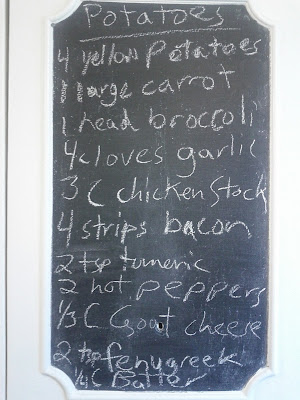 Potatoes
4 yellow potatoes
1 large carrot
1 head broccoli
4 cloves garlic
3 C chicken stock
4 strips bacon
2 tsp tumeric
2 hot peppers
1/3 C Goat cheese
2 tsp fenugreek
1/4 C Butter